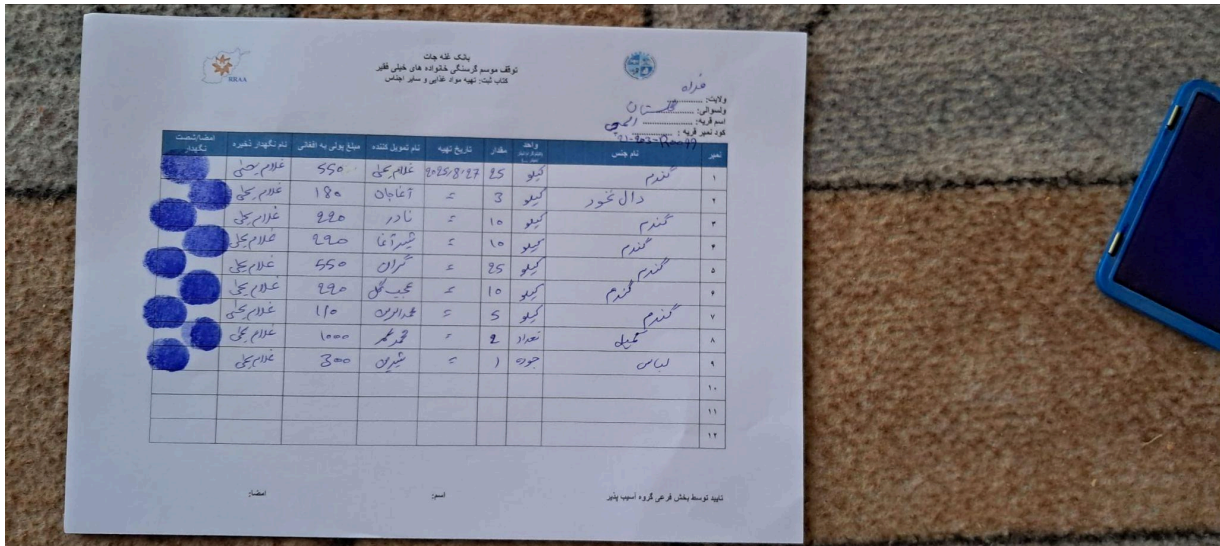 RRAA
بانک غله جات
توقف موسم گرسنگی خانواده های خیلی فقیر
کتاب ثبت: تهیه مواد غذایی و سایر اجناس
ولایت: فراه
ولسوالی: گلستان
اسم قریه:
کود نمبر قریه:
نمبر نام جنس واحد مقدار تاریخ تهیه نام تمویل کننده مبلغ پولی به افغانی نام نگهدار ذخیره امضا/شصت نگهدار
۱ گندم کیلو 25 2025/8/27 غلام یحیی 550 غلام یحیی
۲ دال نخود کیلو 3 = آغاجان 180 غلام یحیی
۳ گندم کیلو 10 = نادر 220 غلام یحیی
۴ گندم کیلو 10 = شیرآغا 220 غلام یحیی
۵ گندم کیلو 25 = گران 550 غلام یحیی
۶ گندم کیلو 10 = عجب گل 220 غلام یحیی
۷ گندم کیلو 5 = 110 غلام یحیی
۸ کمپل تعداد 2 = محمد عمر 1000 غلام یحیی
۹ لباس جوره 1 = شیرین 300 غلام یحیی
۱۰
۱۱
۱۲
تایید توسط بخش فرعی گروه آسیب پذیر اسم: امضا: